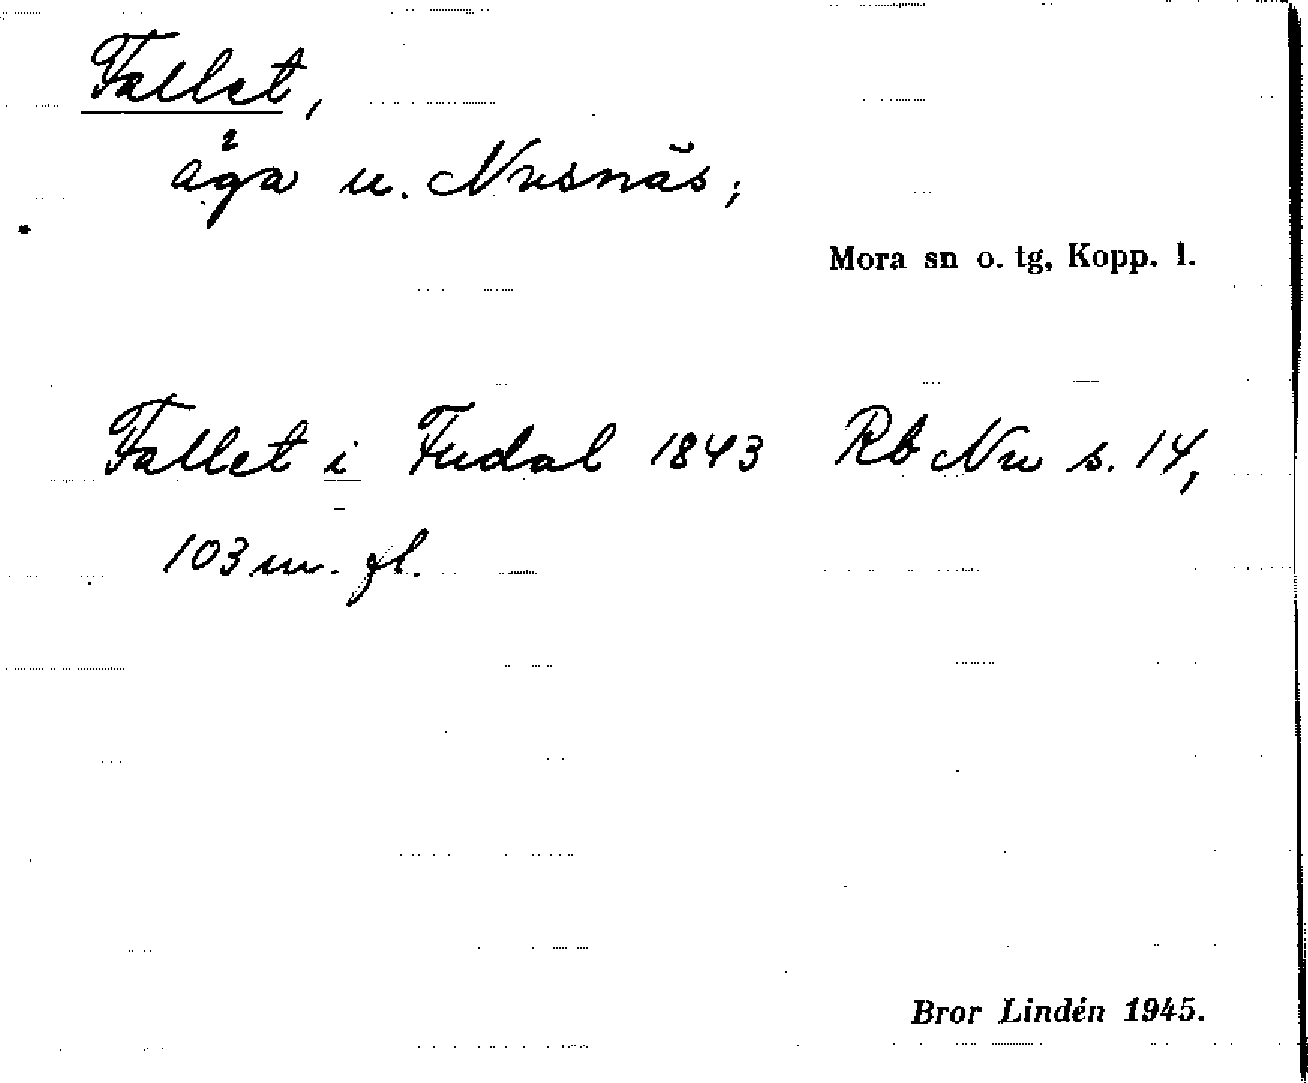 Fallet,
äga u. Nusnäs;
Mora sn o. tg, Kopp. l.
Fallet i Fudal 1843 Rb Nu s. 14,
103 m. fl.
Bror Lindén 1945.